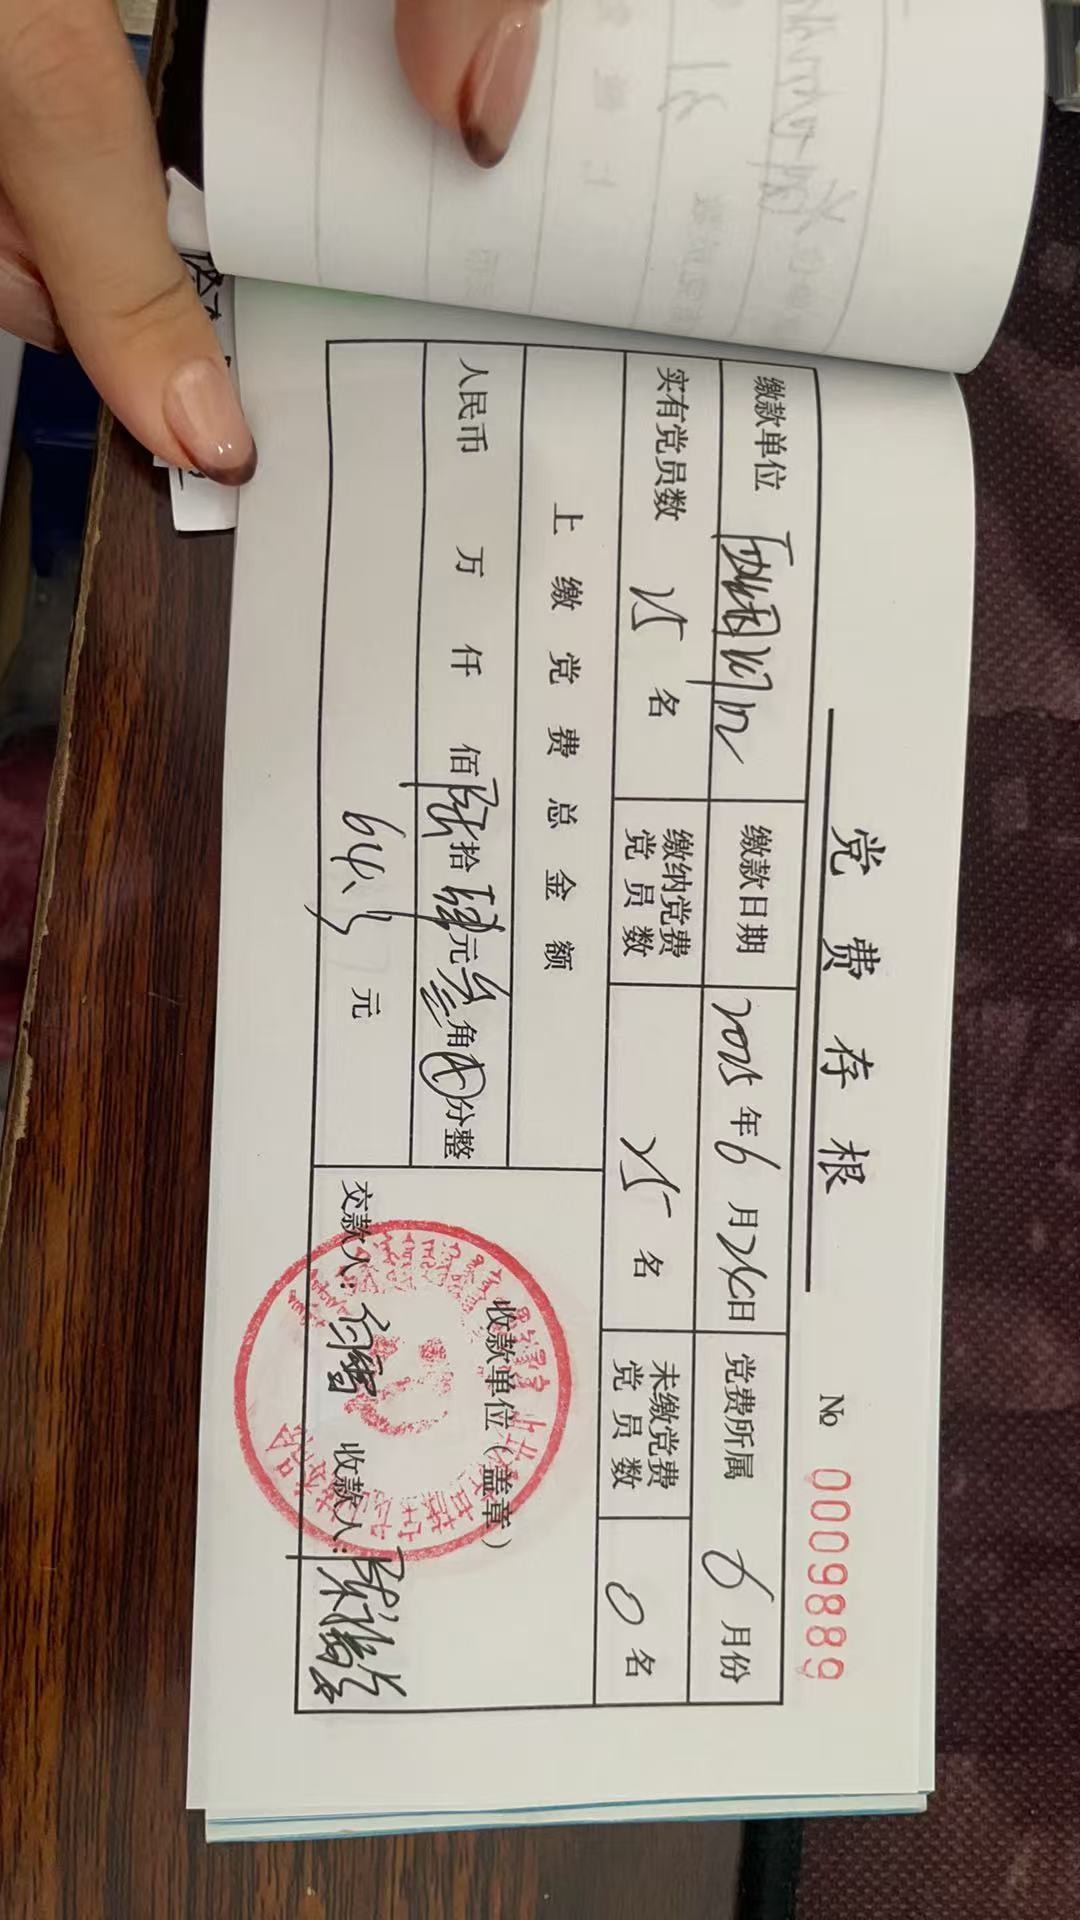 党费存根
№ 0009889
缴款单位 缴款日期 2025年6月26日 党费所属 6月份
实有党员数 25名 缴纳党费党员数 25名 未缴党费党员数 0名
上缴党费总金额
收款单位（盖章）
人民币 万 仟 佰陆拾肆元叁角 分整
64.3 元
交款人： 收款人：